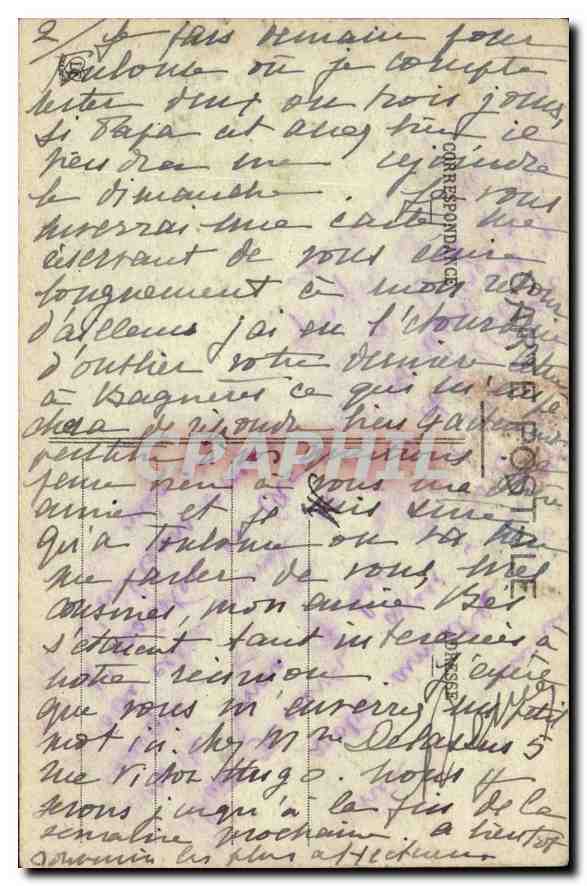 2/ Je pars demain pour
Toulouse où je compte
rester deux ou trois jours,
si Papa est assez bien il
viendra me rejoindre
le dimanche. Je vous
enverrai une carte me
réservant de vous écrire
longuement à mon retour
d'ailleurs j'ai eu l'étourderie
d'oublier votre dernière
à Bagnères ce qui
de répondre bien
je
pense bien à vous ma chère
amie et je suis sûre
qu'à Toulouse on va bien
me parler de vous, mes
cousines, mon amie
s'étaient tant intéressées à
notre réunion. J'espère
que vous m'enverrez un petit
mot ici. chez Mme Delassus 5
rue Victor Hugo. nous y
serons jusqu'à la fin de la
semaine prochaine. a bientôt
souvenirs les plus affectueux
CARTE POSTALE
CORRESPONDANCE
ADRESSE
CPAPHIL